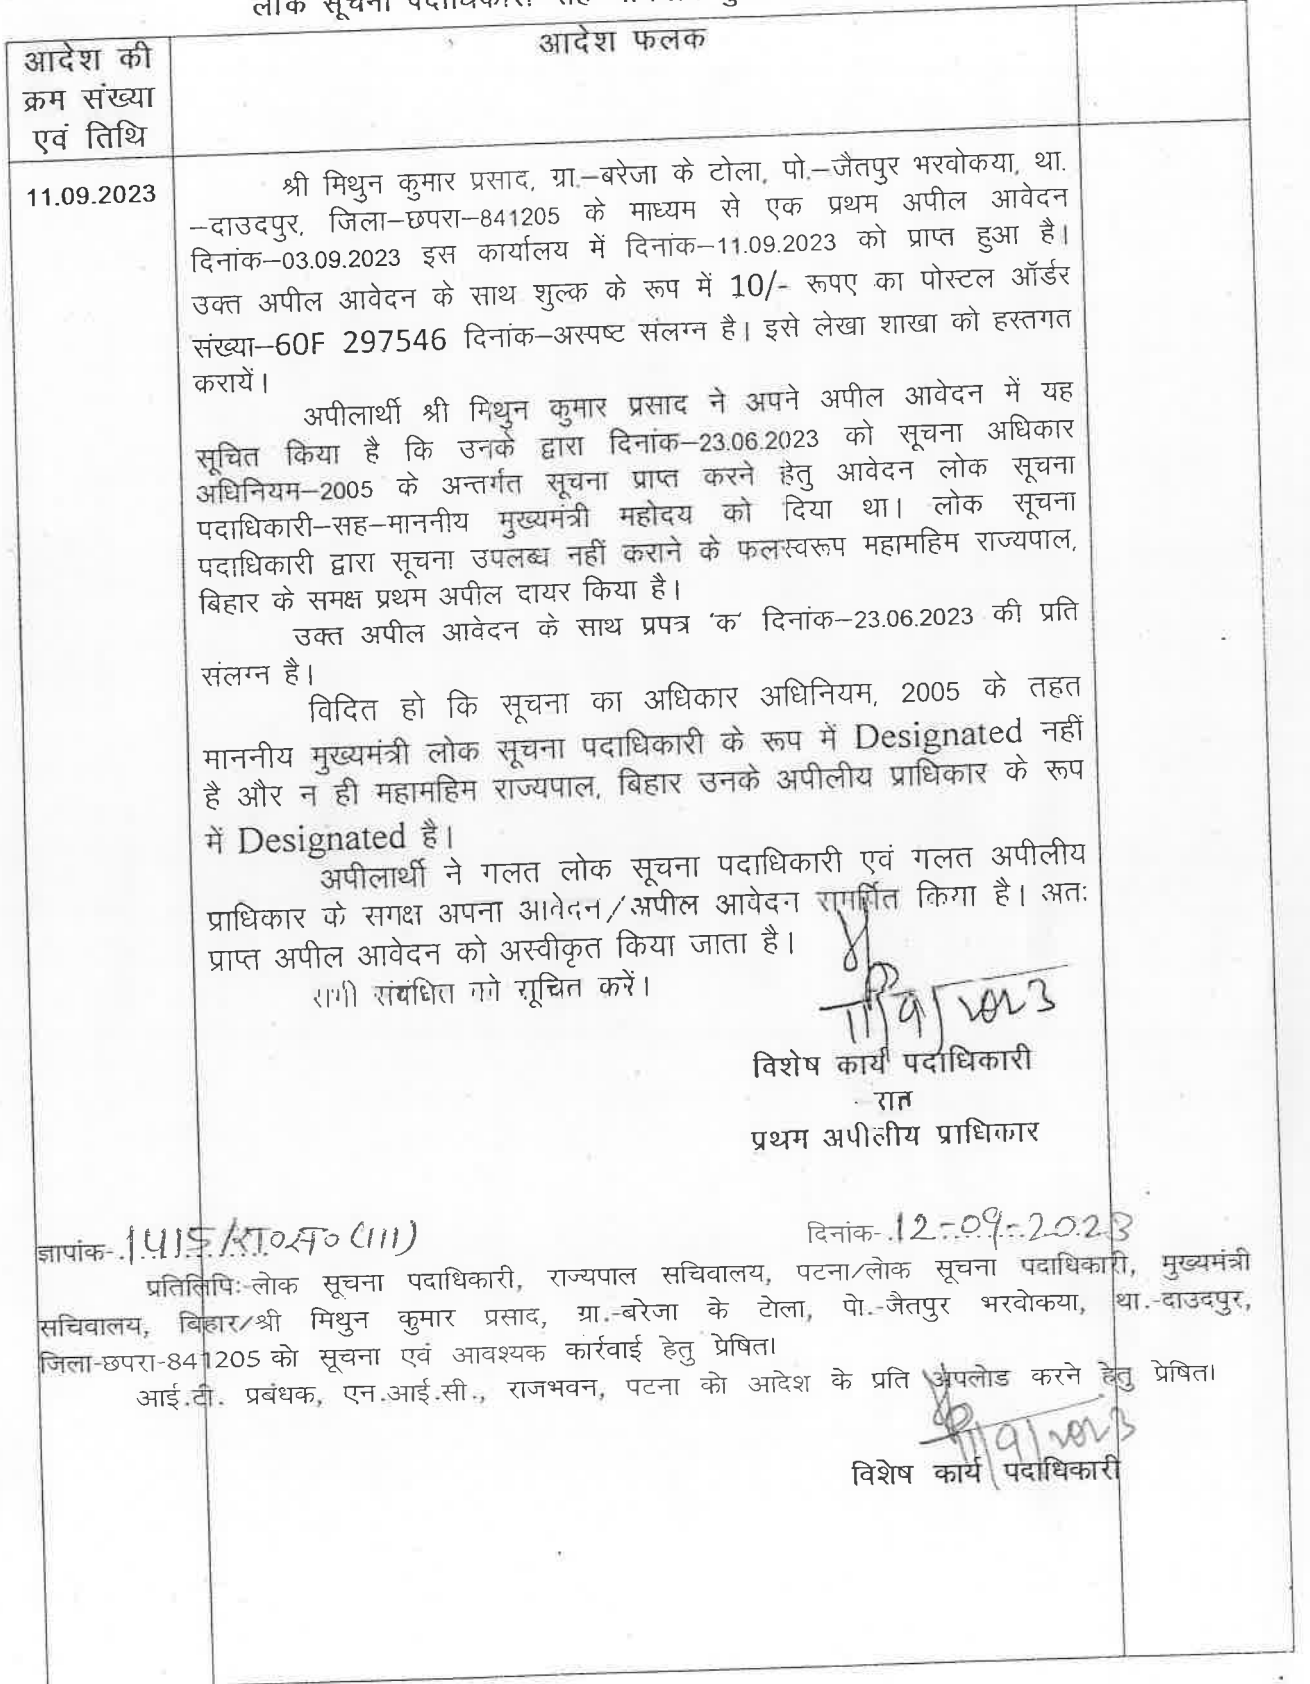 लोक सूचना
आदेश की
क्रम संख्या
एवं तिथि
आदेश फलक
11.09.2023
श्री मिथुन कुमार प्रसाद, ग्रा.–बरेजा के टोला, पो.–जैतपुर भरवोकया, था.
–दाउदपुर, जिला–छपरा–841205 के माध्यम से एक प्रथम अपील आवेदन
दिनांक–03.09.2023 इस कार्यालय में दिनांक–11.09.2023 को प्राप्त हुआ है।
उक्त अपील आवेदन के साथ शुल्क के रूप में 10/- रूपए का पोस्टल ऑर्डर
संख्या–60F 297546 दिनांक–अस्पष्ट संलग्न है। इसे लेखा शाखा को हस्तगत
करायें।
अपीलार्थी श्री मिथुन कुमार प्रसाद ने अपने अपील आवेदन में यह
सूचित किया है कि उनके द्वारा दिनांक–23.06.2023 को सूचना अधिकार
अधिनियम–2005 के अन्तर्गत सूचना प्राप्त करने हेतु आवेदन लोक सूचना
पदाधिकारी–सह–माननीय मुख्यमंत्री महोदय को दिया था। लोक सूचना
पदाधिकारी द्वारा सूचना उपलब्ध नहीं कराने के फलस्वरूप महामहिम राज्यपाल,
बिहार के समक्ष प्रथम अपील दायर किया है।
उक्त अपील आवेदन के साथ प्रपत्र 'क' दिनांक–23.06.2023 की प्रति
संलग्न है।
विदित हो कि सूचना का अधिकार अधिनियम, 2005 के तहत
माननीय मुख्यमंत्री लोक सूचना पदाधिकारी के रूप में Designated नहीं
है और न ही महामहिम राज्यपाल, बिहार उनके अपीलीय प्राधिकार के रूप
में Designated है।
अपीलार्थी ने गलत लोक सूचना पदाधिकारी एवं गलत अपीलीय
प्राधिकार के समक्ष अपना आवेदन/अपील आवेदन समर्पित किया है। अतः
प्राप्त अपील आवेदन को अस्वीकृत किया जाता है।
सभी संबंधित को सूचित करें।
11/9/2023
विशेष कार्य पदाधिकारी
सह
प्रथम अपीलीय प्राधिकार
ज्ञापांक-.1415/रा0स0(III) दिनांक-.12-09-2023
प्रतिलिपिः-लोक सूचना पदाधिकारी, राज्यपाल सचिवालय, पटना/लोक सूचना पदाधिकारी, मुख्यमंत्री
सचिवालय, बिहार/श्री मिथुन कुमार प्रसाद, ग्रा.-बरेजा के टोला, पो.-जैतपुर भरवोकया, था.-दाउदपुर,
जिला-छपरा-841205 को सूचना एवं आवश्यक कार्रवाई हेतु प्रेषित।
आई.टी. प्रबंधक, एन.आई.सी., राजभवन, पटना को आदेश के प्रति अपलोड करने हेतु प्रेषित।
11/9/2023
विशेष कार्य पदाधिकारी